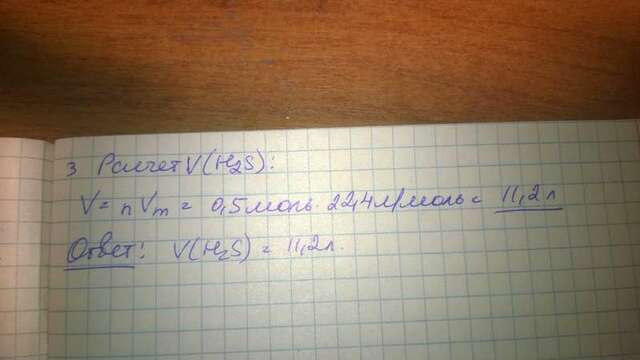 3 Расчет V(H2S):
V = n Vm = 0,5 моль · 22,4 л/моль = 11,2 л
Ответ: V(H2S) = 11,2 л.